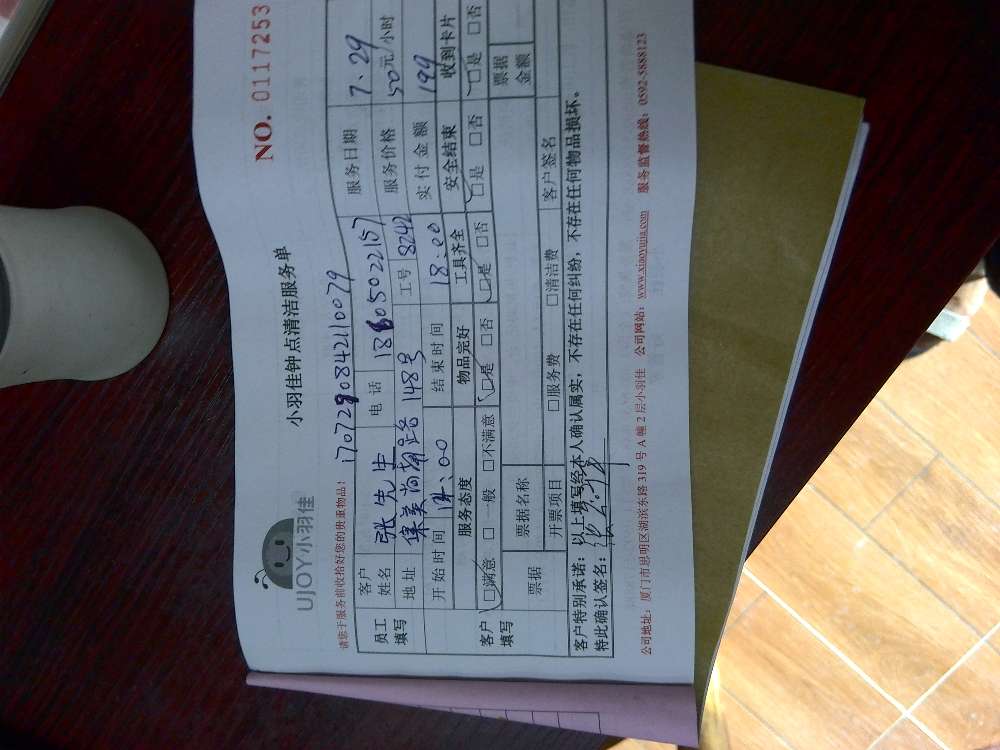 NO. 0117253
UJOY小羽佳
小羽佳钟点清洁服务单
请您于服务前收拾好您的贵重物品! 170729084211 0079
员工填写 客户姓名 张先生 电话 18050502157 服务日期 7.29
地址 集美尚南路148号 工号 8242 服务价格 50元/小时
开始时间 14:00 结束时间 18:00 实付金额 199
客户填写 服务态度 物品完好 工具齐全 安全结束 收到卡片
□满意 □一般 □不满意 □是 □否 □是 □否 □是 □否 □是 □否
票据 票据名称 票据金额
开票项目 □服务费 □清洁费 客户签名
客户特别承诺:以上填写经本人确认属实,不存在任何纠纷,不存在任何物品损坏。
特此确认签名:
公司地址:厦门市思明区湖滨东路319号A幢2层小羽佳 公司网站:www.xiaoyujia.com 服务监督热线:0592-5888123